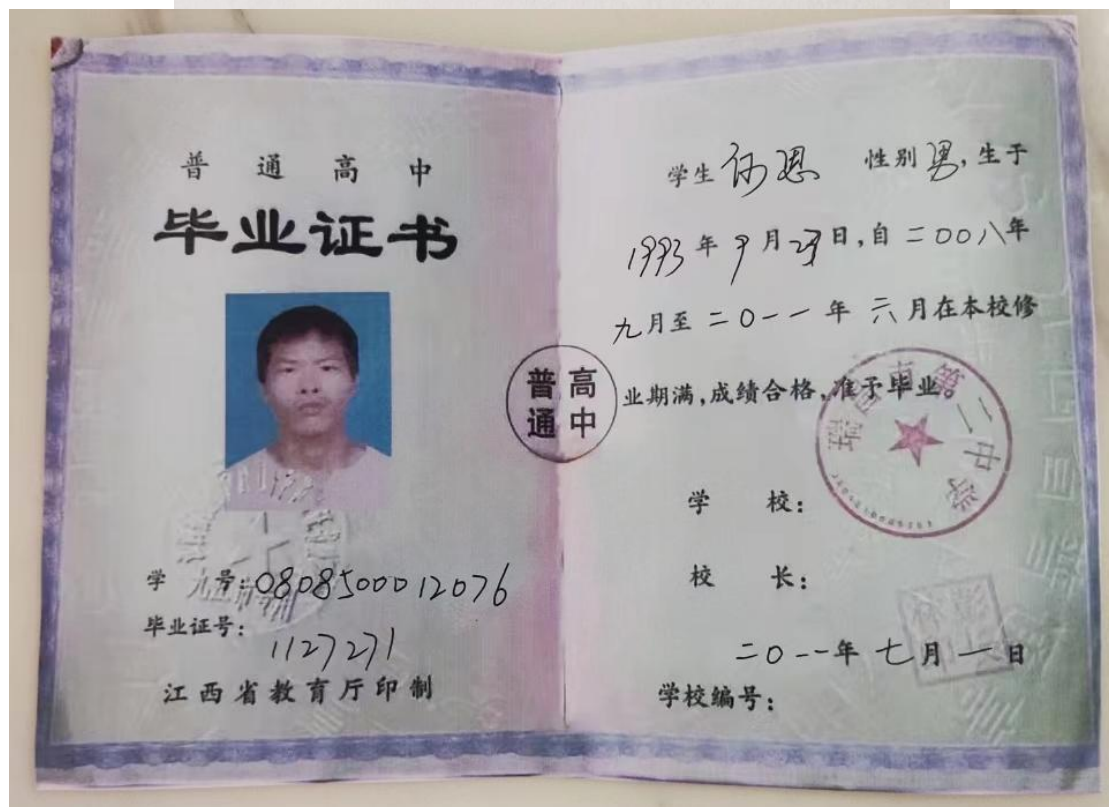 普通高中
毕业证书
学号:0808500012076
毕业证号:
1127271
江西省教育厅印制
普高
通中
学生 恩 性别男,生于
1993年9月29日,自二00八年
九月至二0一一年六月在本校修
业期满,成绩合格,准予毕业。
瑞昌市第二中学
学校:
校长:
二0一一年七月一日
学校编号: